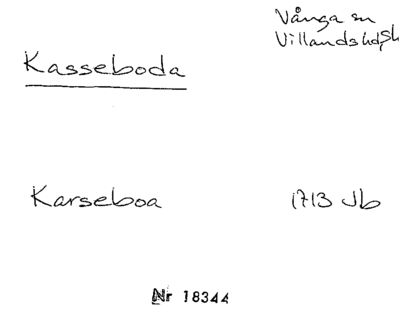 Vånga sn
Villands hd, Sk
Kasseboda
Karseboa 1713 Jb
Nr 18344